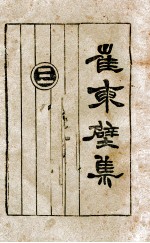 崔東壁集
三